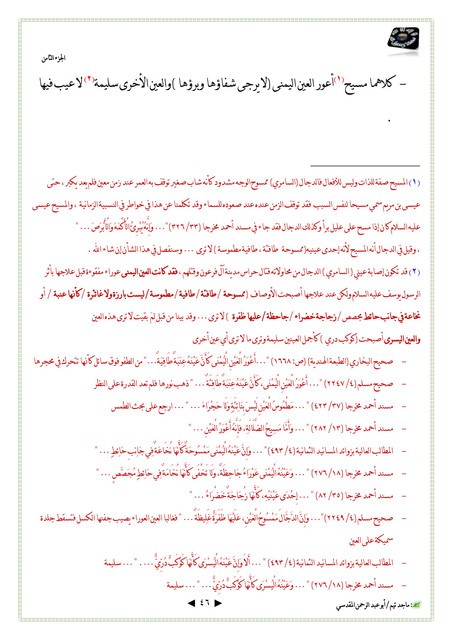 الجزء الثامن
– كلاهما مسيح(١) أعور العين اليمنى (لا يرجى شفاؤها وبرؤها) والعين الأخرى سليمة(٢) لا عيب فيها
.
(١) المسيح صفة للذات وليس للأفعال فالدجال (السامري) ممسوح الوجه مشدود كأنه شاب صغير توقف به العمر عند زمن معين فلم يعد يكبر ، حتى
عيسى بن مريم سمي مسيحا لنفس السبب فقد توقف الزمن عنده عند صعوده للسماء وقد تكلمنا عن هذا في خواطر في النسبية الزمانية ، والمسيح عيسى
عليه السلام كان إذا مسح على عليل برأ وكذلك الدجال فقد جاء في مسند أحمد مخرجا (٣٢٦/٣٣) "... وَإِنَّهُ يُبْرِئُ الْأَكْمَهَ وَالْأَبْرَصَ ..."
، وقيل في الدجال أنه المسيح لأنه إحدى عينيه (ممسوحة طافئة ، طافية ومطموسة) لا ترى ... وسنفصل في هذا الشأن إن شاء الله .
(٢) قد تكون إصابة عيني (السامري) الدجال من محاولاته قتال حراس مدينة آل فرعون وقتلهم ، فقد كانت العين اليمنى عوراء مفقوءة قبل علاجها بأثر
الرسول يوسف عليه السلام ولكن عند علاجها أصبحت الأوصاف (ممسوحة / طافئة / طافية / مطموسة / ليست بارزة ولا غائرة / كأنها عنبة / أو
نخاعة في جانب حائط مجصص / زجاجة خضراء / جاحظة / عليها ظفرة ) لا ترى ... وقد بينا من قبل لم بقيت لا ترى هذه العين
والعين اليسرى أصبحت (كوكب دري) كأجمل العينين سليمة وترى ما لا ترى أي عين أخرى
– صحيح البخاري (الطبعة الهندية) (ص: ١٦٦٨) "... أَعْوَرُ الْعَيْنِ الْيُمْنَى كَأَنَّ عَيْنَهُ عِنَبَةٌ طَافِيَةٌ..." من الطفو فوق سائل كأنها تتحرك في محجرها
– صحيح مسلم (٢٢٤٧/٤) "... أَعْوَرُ الْعَيْنِ الْيُمْنَى، كَأَنَّ عَيْنَهُ عِنَبَةٌ طَافِئَةٌ ..." ذهب نورها فلم تعد القدرة على النظر
– مسند أحمد مخرجا (٤٢٣/٣٧) "... مَطْمُوسُ الْعَيْنِ لَيْسَ بِنَاتِئَةٍ وَلَا حَجْرَاءَ ..." ... ارجع على بحث الطمس
– مسند أحمد مخرجا (٢٨٢/١٣) "... وَأَمَّا مَسِيحُ الضَّلَالَةِ، فَإِنَّهُ أَعْوَرُ الْعَيْنِ ..."
– المطالب العالية بزوائد المسانيد الثمانية (٤٩٣/٤) "... وَإِنَّ عَيْنَهُ الْيُمْنَى مَمْسُوحَةٌ كَأَنَّهَا نُخَاعَةٌ فِي جَانِبِ حَائِطٍ ..."
– مسند أحمد مخرجا (٢٧٦/١٨) "... وَعَيْنُهُ الْيُمْنَى عَوْرَاءُ جَاحِظَةٌ، وَلَا تَخْفَى كَأَنَّهَا نُخَامَةٌ فِي حَائِطٍ مُجَصَّصٍ ..."
– مسند أحمد مخرجا (٨٢/٣٥) "... إِحْدَى عَيْنَيْهِ، كَأَنَّهَا زُجَاجَةٌ خَضْرَاءُ ..."
– صحيح مسلم (٢٢٤٩/٤) "... وَإِنَّ الدَّجَّالَ مَمْسُوحُ الْعَيْنِ، عَلَيْهَا ظَفَرَةٌ غَلِيظَةٌ ..." فغالبا العين العوراء يصيب جفنها الكسل فتسقط جلدة
سميكة على العين
– المطالب العالية بزوائد المسانيد الثمانية (٤٩٣/٤) "... أَلَا وَإِنَّ عَيْنَهُ الْيُسْرَى كَأَنَّهَا كَوْكَبٌ دُرِّيٌّ ..." ... سليمة
– مسند أحمد مخرجا (٢٧٦/١٨) "... وَعَيْنُهُ الْيُسْرَى كَأَنَّهَا كَوْكَبٌ دُرِّيٌّ ..." سليمة
: ماجد تيم / أبو عبد الرحمن المقدسي
◄ ٤٦ ►